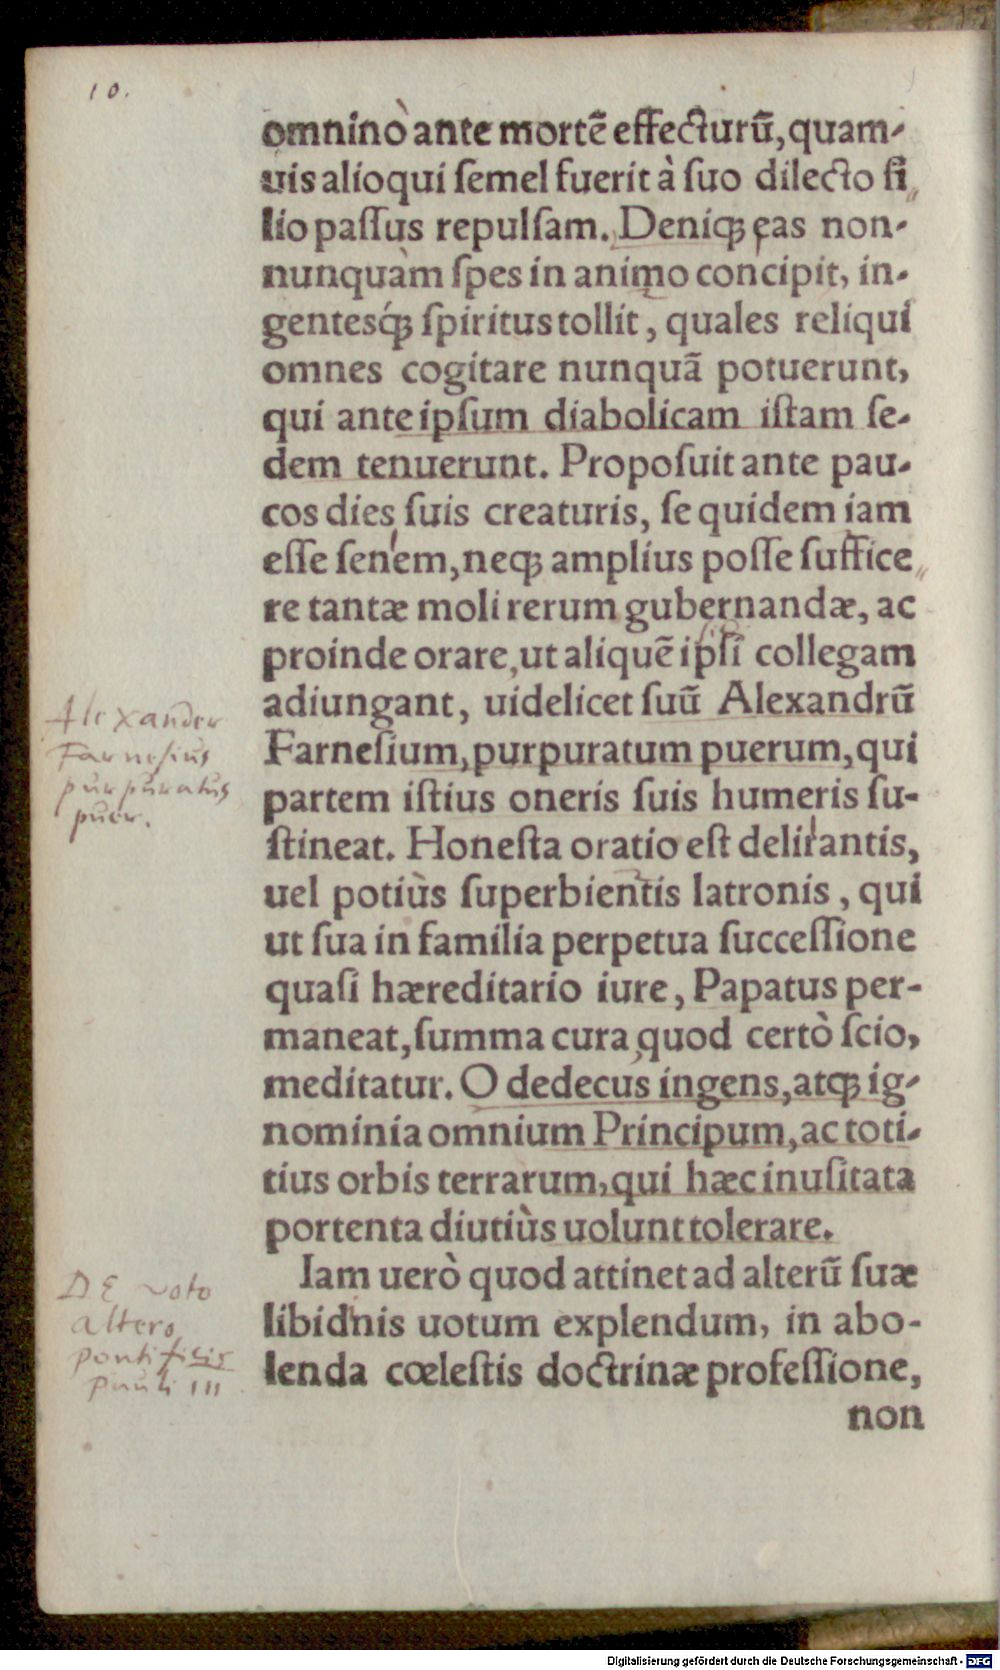 10.
omnino ante mortẽ effecturũ, quam-
uis alioqui semel fuerit à suo dilecto fi
lio passus repulsam. Deniqꝫ eas non-
nunquàm spes in animo concipit, in-
gentesqꝫ́ spiritus tollit, quales reliqui
omnes cogitare nunquã potuerunt,
qui ante ipsum diabolicam istam se-
dem tenuerunt. Proposuit ante pau-
cos dies suis creaturis, se quidem iam
esse senem, neqꝫ amplius posse suffice
re tantæ moli rerum gubernandæ, ac
proinde orare, ut aliquẽ ipsi collegam
adiungant, uidelicet suũ Alexandrũ
Farnesium, purpuratum puerum, qui
partem istius oneris suis humeris su-
stineat. Honesta oratio est delirantis,
uel potiùs superbientis latronis, qui
ut sua in familia perpetua successione
quasi hæreditario iure, Papatus per-
maneat, summa cura, quod certò scio,
meditatur. O dedecus ingens, atqꝫ ig-
nominia omnium Principum, ac toti-
tius orbis terrarum, qui hæc inusitata
portenta diutiùs uolunt tolerare.
Iam uerò quod attinet ad alterũ suæ
libidnis uotum explendum, in abo-
lenda cœlestis doctrinæ professione,
non
Alexander
Farnesius
purpuratus
puer.
DE voto
altero
pontificis
pauli III
Digitalisierung gefördert durch die Deutsche Forschungsgemeinschaft - DFG